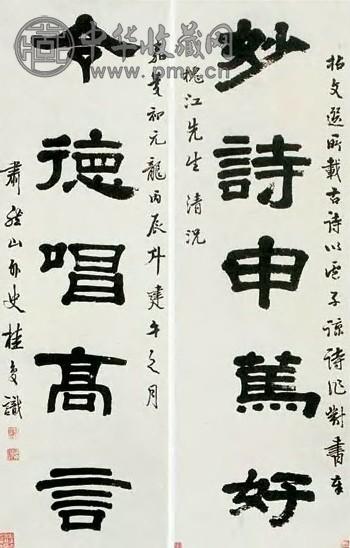 中华收藏网
文選所載古詩以盧子諒詩作對書奉
妙詩申篤好
槐江先生 清況
嘉慶初元龍丙辰斗建午之月
令德唱高言
肅然山外史桂馥識